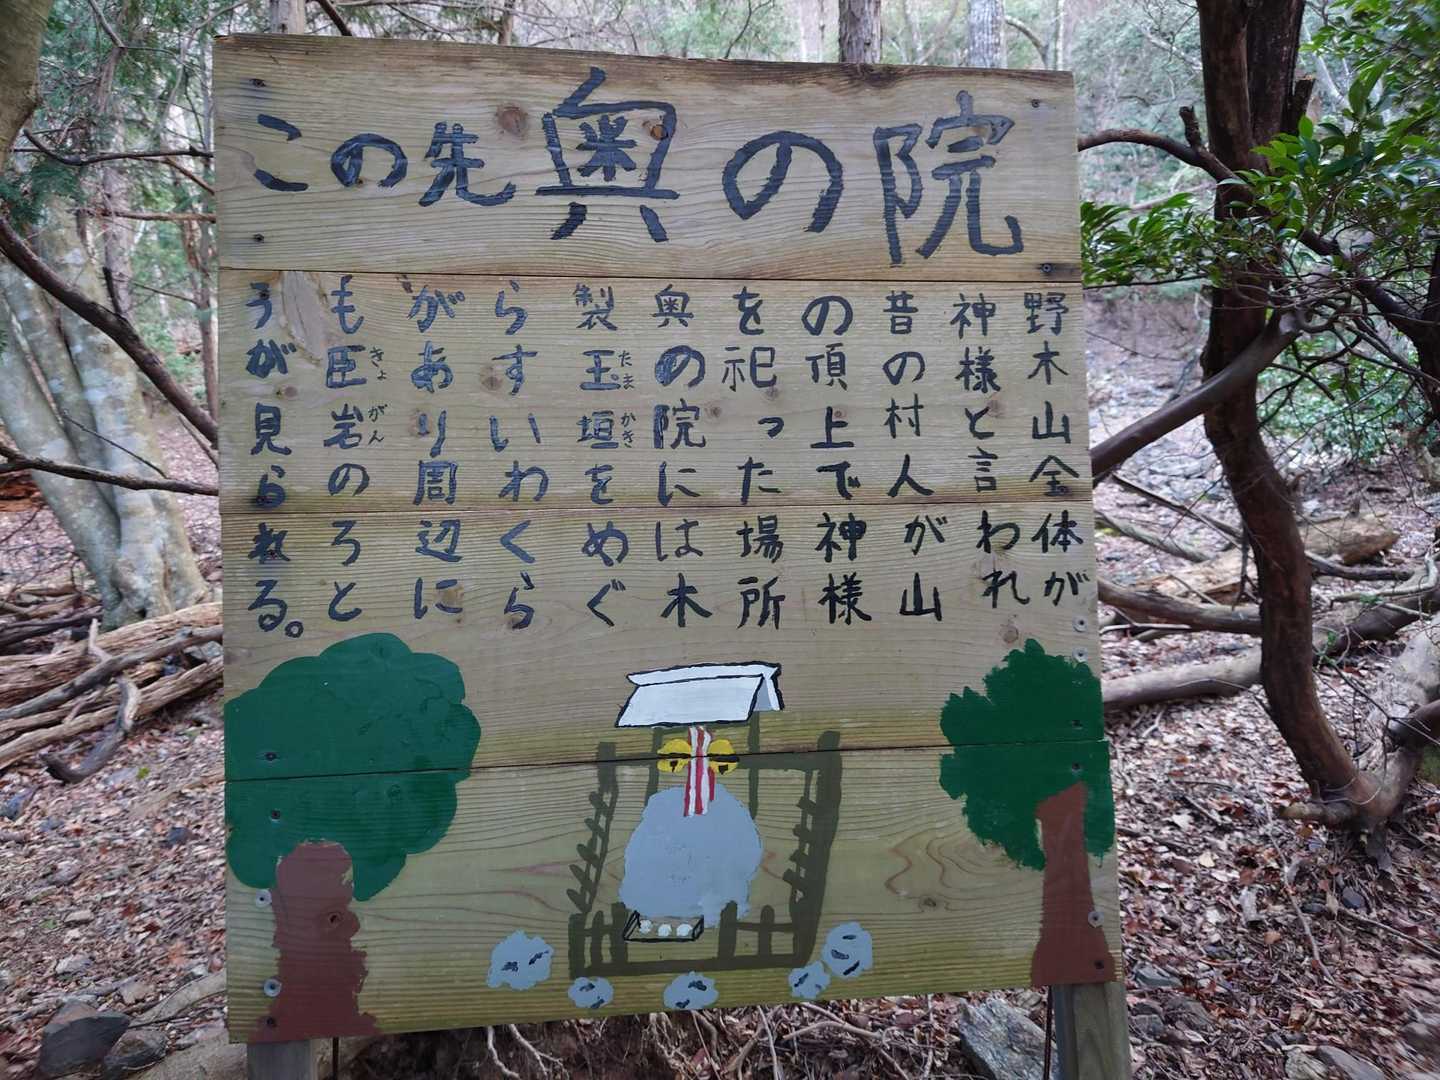 この先奥の院
野木山全体が
神様と言われ
昔の村人が山
の頂上で神様
を祀った場所
奥の院には木
たまかき
製玉垣をめぐ
らすいわくら
があり周辺に
きょがん
も臣岩のろと
うが見られる。